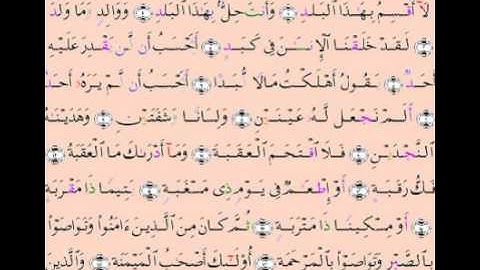 لَآ أُقْسِمُ بِهَٰذَا ٱلْبَلَدِ ۝١ وَأَنتَ حِلٌّۢ بِهَٰذَا ٱلْبَلَدِ ۝٢ وَوَالِدٍ وَمَا وَلَدَ
۝٣ لَقَدْ خَلَقْنَا ٱلْإِنسَٰنَ فِى كَبَدٍ ۝٤ أَيَحْسَبُ أَن لَّن يَقْدِرَ عَلَيْهِ
أَحَدٌ ۝٥ يَقُولُ أَهْلَكْتُ مَالًا لُّبَدًا ۝٦ أَيَحْسَبُ أَن لَّمْ يَرَهُۥٓ أَحَدٌ
۝٧ أَلَمْ نَجْعَل لَّهُۥ عَيْنَيْنِ ۝٨ وَلِسَانًا وَشَفَتَيْنِ ۝٩ وَهَدَيْنَٰهُ
ٱلنَّجْدَيْنِ ۝١٠ فَلَا ٱقْتَحَمَ ٱلْعَقَبَةَ ۝١١ وَمَآ أَدْرَىٰكَ مَا ٱلْعَقَبَةُ ۝١٢
فَكُّ رَقَبَةٍ ۝١٣ أَوْ إِطْعَٰمٌ فِى يَوْمٍ ذِى مَسْغَبَةٍ ۝١٤ يَتِيمًا ذَا مَقْرَبَةٍ
۝١٥ أَوْ مِسْكِينًا ذَا مَتْرَبَةٍ ۝١٦ ثُمَّ كَانَ مِنَ ٱلَّذِينَ ءَامَنُوا۟ وَتَوَاصَوْا۟
بِٱلصَّبْرِ وَتَوَاصَوْا۟ بِٱلْمَرْحَمَةِ ۝١٧ أُو۟لَٰٓئِكَ أَصْحَٰبُ ٱلْمَيْمَنَةِ ۝١٨ وَٱلَّذِينَ